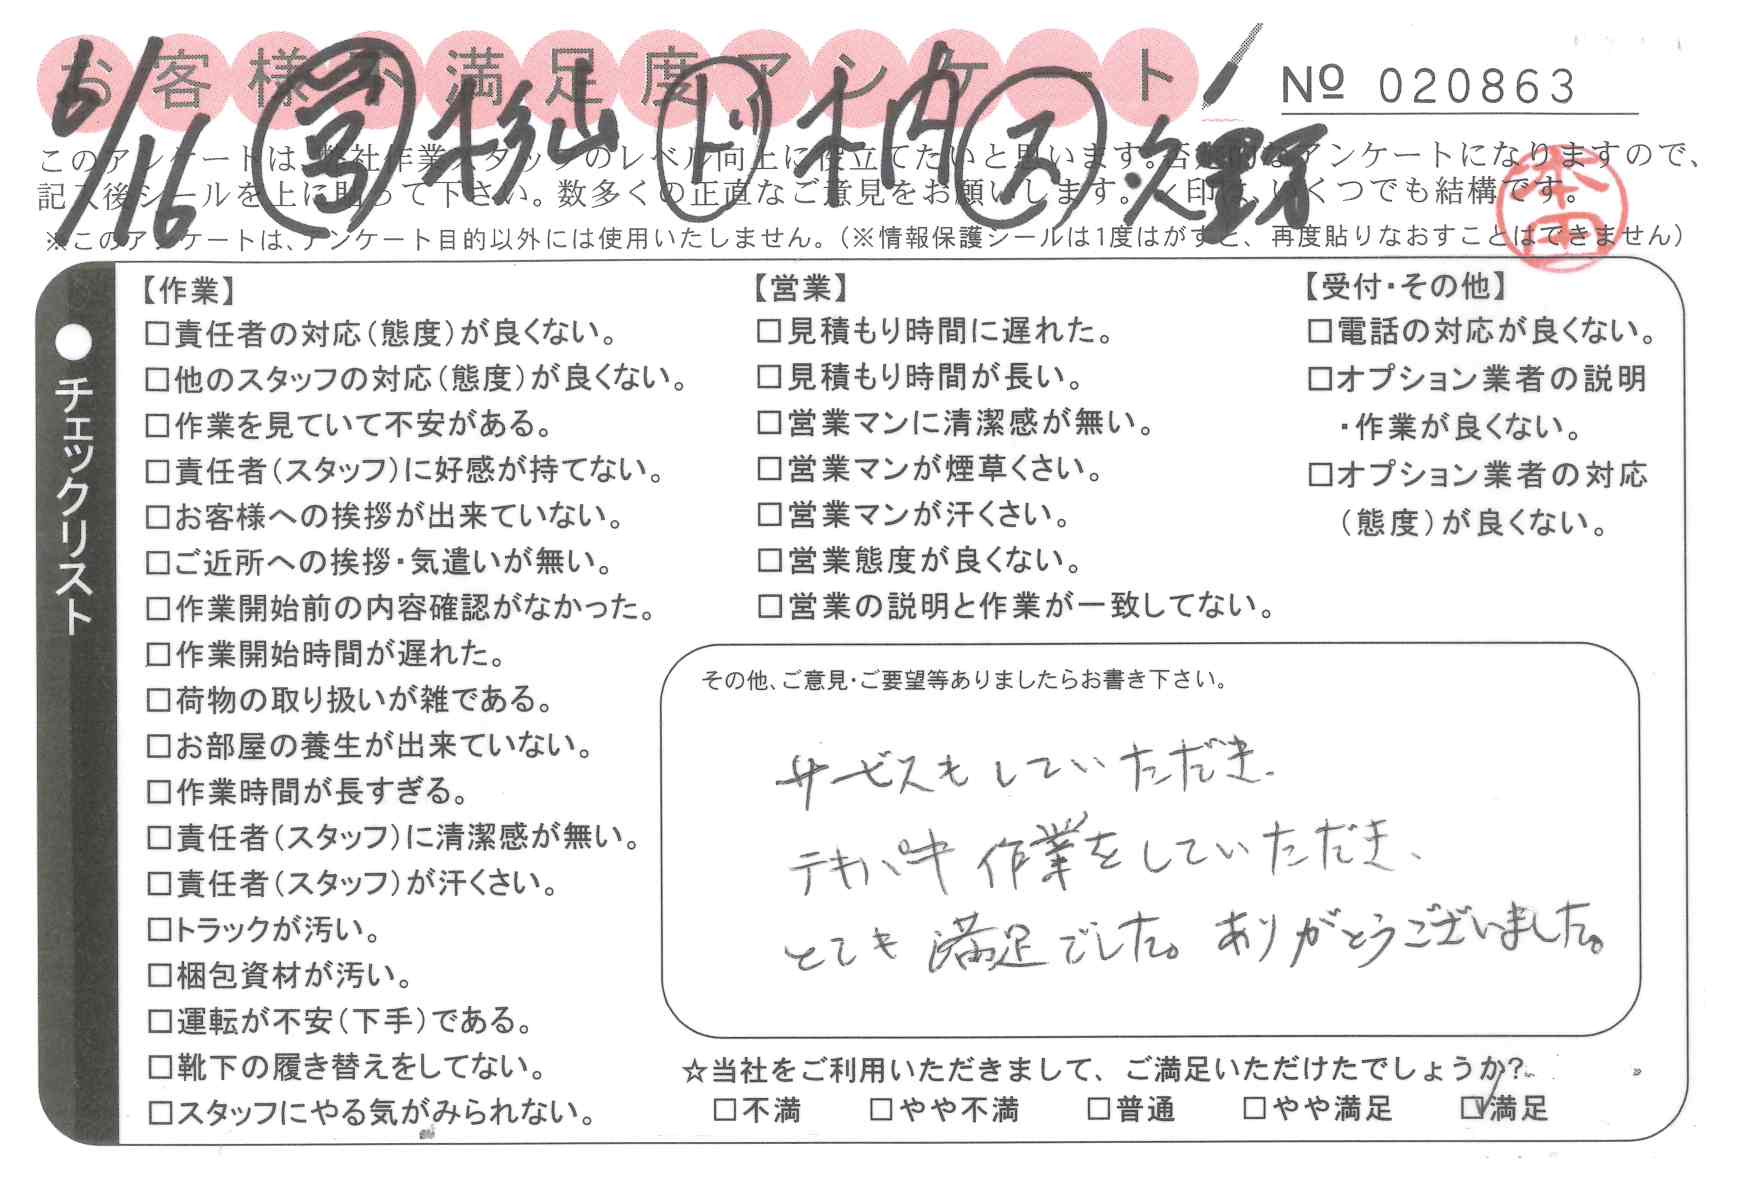 お客様不満足度アンケート
№ 020863
6/16 営 杉山 ド 木内 ス 久野
このアンケートは、弊社作業スタッフのレベル向上に役立てたいと思います。否定的なアンケートになりますので、
記入後シールを上に貼って下さい。数多くの正直なご意見をお願いします。✓印は、いくつでも結構です。
※このアンケートは、アンケート目的以外には使用いたしません。(※情報保護シールは1度はがすと、再度貼りなおすことはできません)
本田
チェックリスト
【作業】
□責任者の対応(態度)が良くない。
□他のスタッフの対応(態度)が良くない。
□作業を見ていて不安がある。
□責任者(スタッフ)に好感が持てない。
□お客様への挨拶が出来ていない。
□ご近所への挨拶・気遣いが無い。
□作業開始前の内容確認がなかった。
□作業開始時間が遅れた。
□荷物の取り扱いが雑である。
□お部屋の養生が出来ていない。
□作業時間が長すぎる。
□責任者(スタッフ)に清潔感が無い。
□責任者(スタッフ)が汗くさい。
□トラックが汚い。
□梱包資材が汚い。
□運転が不安(下手)である。
□靴下の履き替えをしてない。
□スタッフにやる気がみられない。
【営業】
□見積もり時間に遅れた。
□見積もり時間が長い。
□営業マンに清潔感が無い。
□営業マンが煙草くさい。
□営業マンが汗くさい。
□営業態度が良くない。
□営業の説明と作業が一致してない。
【受付・その他】
□電話の対応が良くない。
□オプション業者の説明
・作業が良くない。
□オプション業者の対応
(態度)が良くない。
その他、ご意見・ご要望等ありましたらお書き下さい。
サービスもしていただき、
テキパキ作業をしていただき、
とても満足でした。ありがとうございました。
☆当社をご利用いただきまして、ご満足いただけたでしょうか?
□不満 □やや不満 □普通 □やや満足 ☑満足